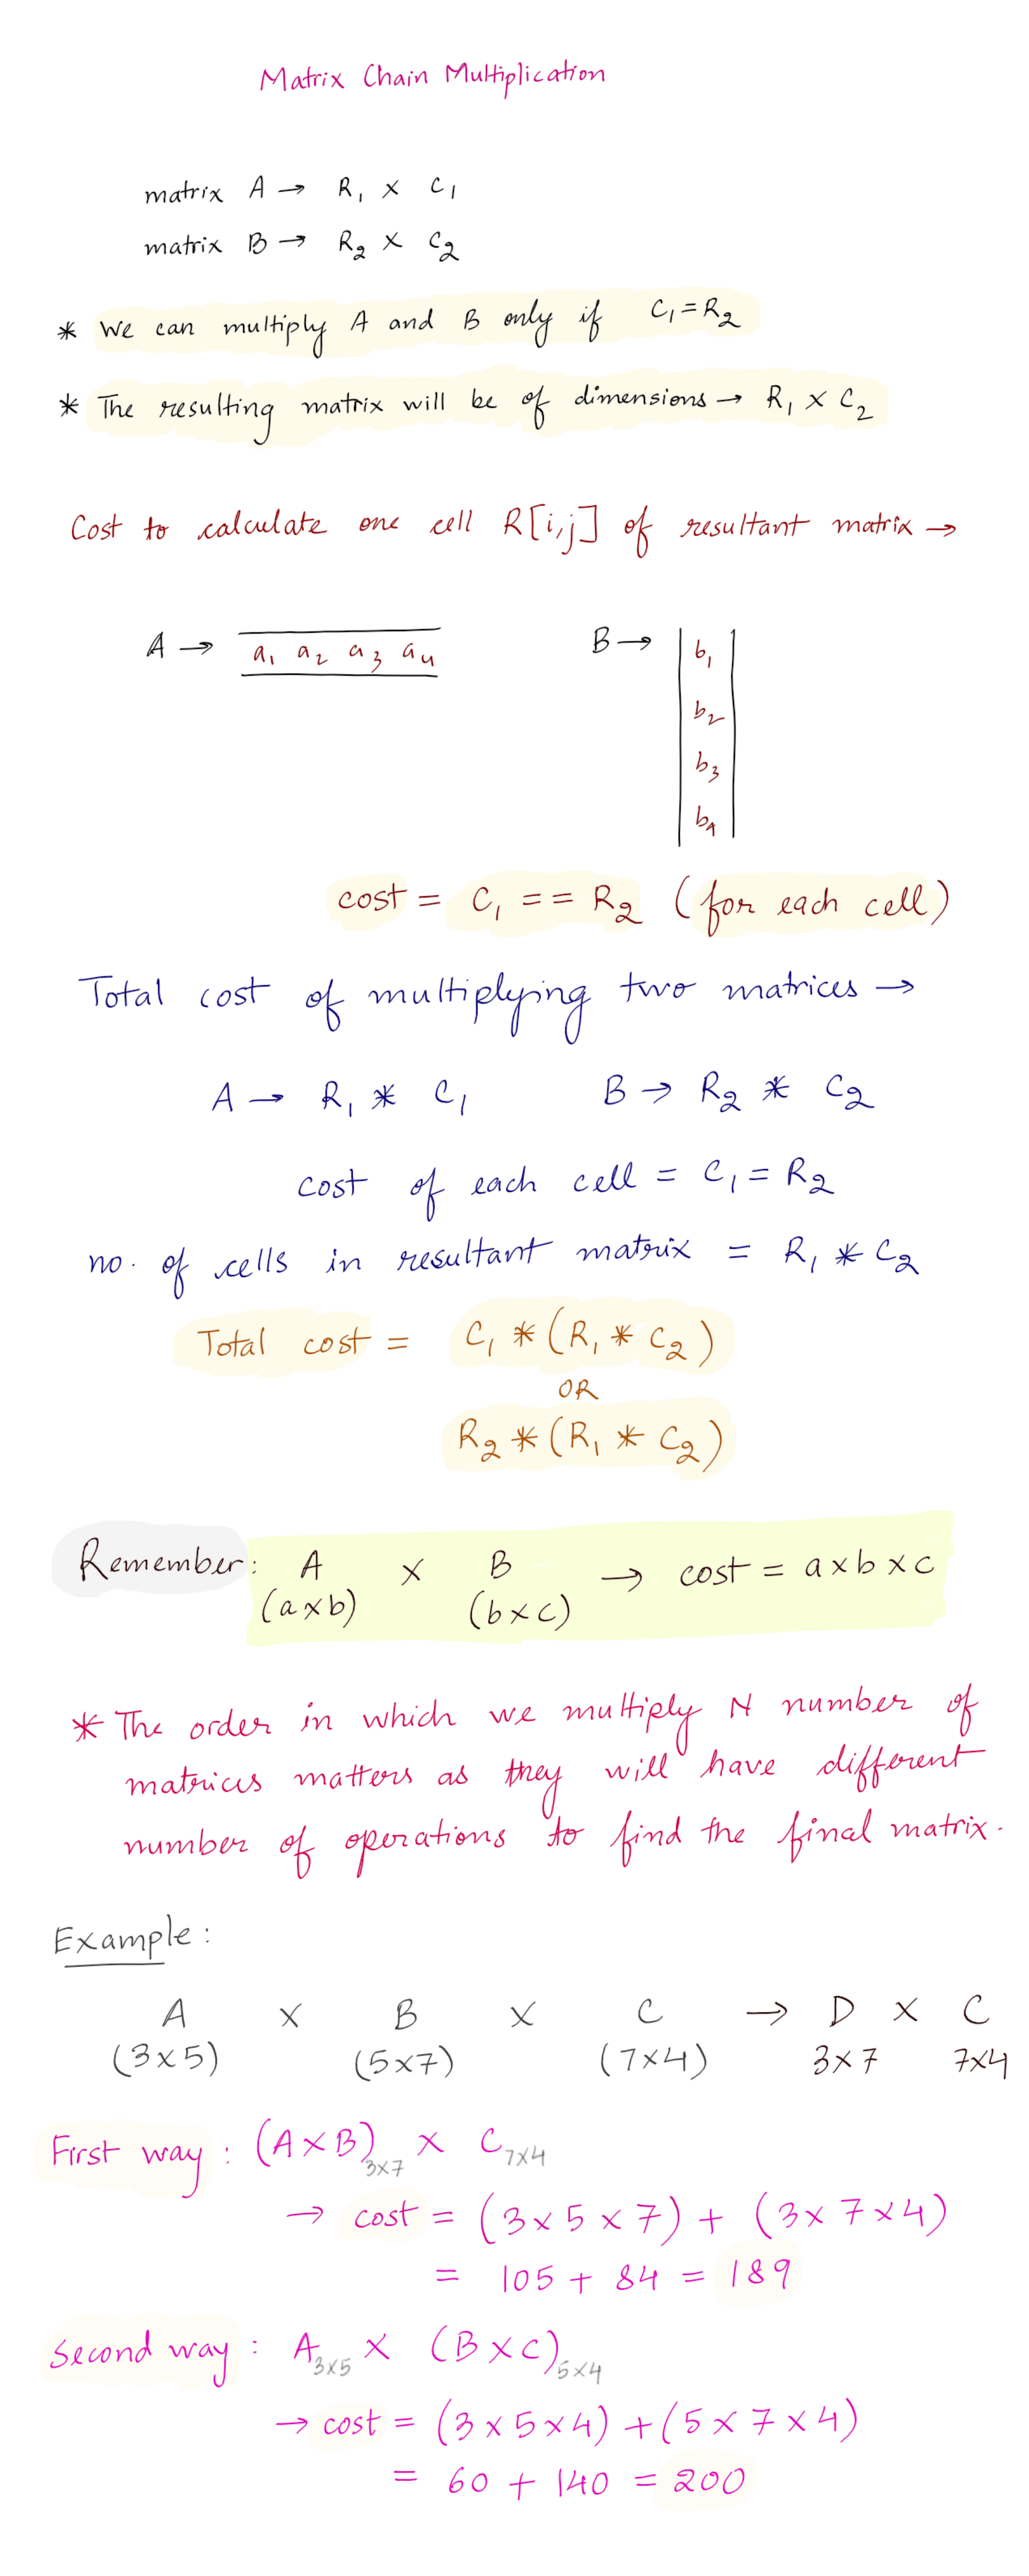 Matrix Chain Multiplication
matrix A → R₁ × C₁
matrix B → R₂ × C₂
* We can multiply A and B only if C₁=R₂
* The resulting matrix will be of dimensions → R₁ × C₂
Cost to calculate one cell R[i,j] of resultant matrix →
A → a₁ a₂ a₃ a₄ B → b₁
b₂
b₃
b₄
cost = C₁ == R₂ (for each cell)
Total cost of multiplying two matrices →
A → R₁ * C₁ B → R₂ * C₂
cost of each cell = C₁ = R₂
no. of cells in resultant matrix = R₁ * C₂
Total cost = C₁ * (R₁ * C₂)
OR
R₂ * (R₁ * C₂)
Remember: A × B → cost = a×b×c
(a×b) (b×c)
* The order in which we multiply N number of
matrices matters as they will have different
number of operations to find the final matrix.
Example:
A × B × C → D × C
(3×5) (5×7) (7×4) 3×7 7×4
First way: (A×B)₃ₓ₇ × C₇ₓ₄
→ cost = (3×5×7) + (3×7×4)
= 105 + 84 = 189
Second way: A₃ₓ₅ × (B×C)₅ₓ₄
→ cost = (3×5×4) + (5×7×4)
= 60 + 140 = 200